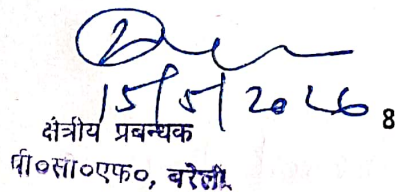 15/5/2026
8
क्षेत्रीय प्रबन्धक
पी०सी०एफ०, बरेली